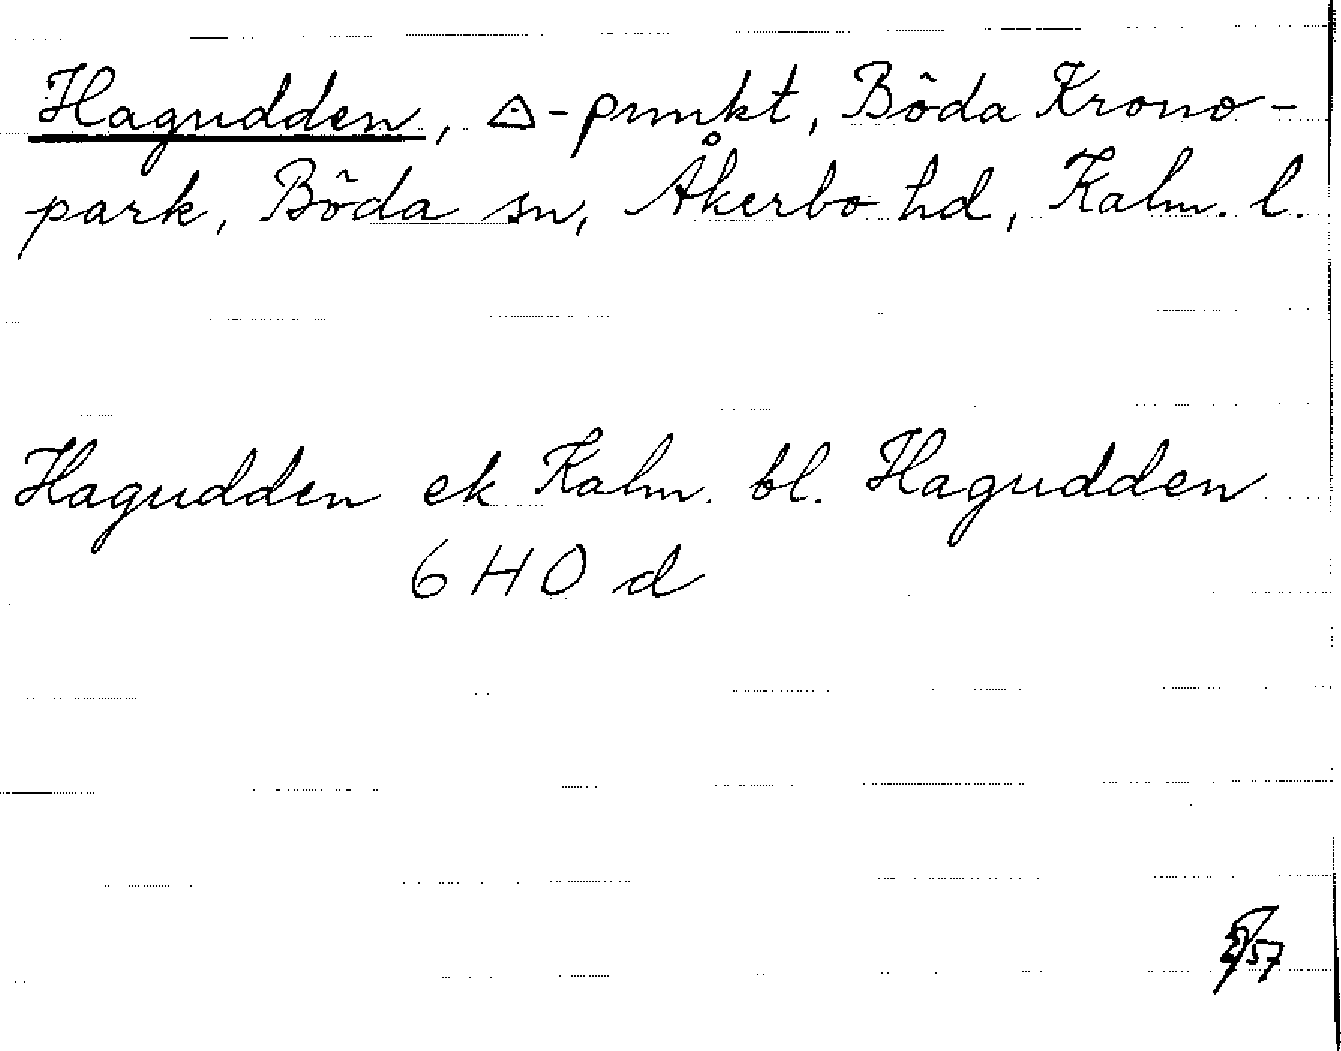 Hagudden, △-punkt, Böda Krono-
park, Böda sn, Åkerbo hd, Kalm. l.
Hagudden ek Kalm. bl. Hagudden
6 H 0 d